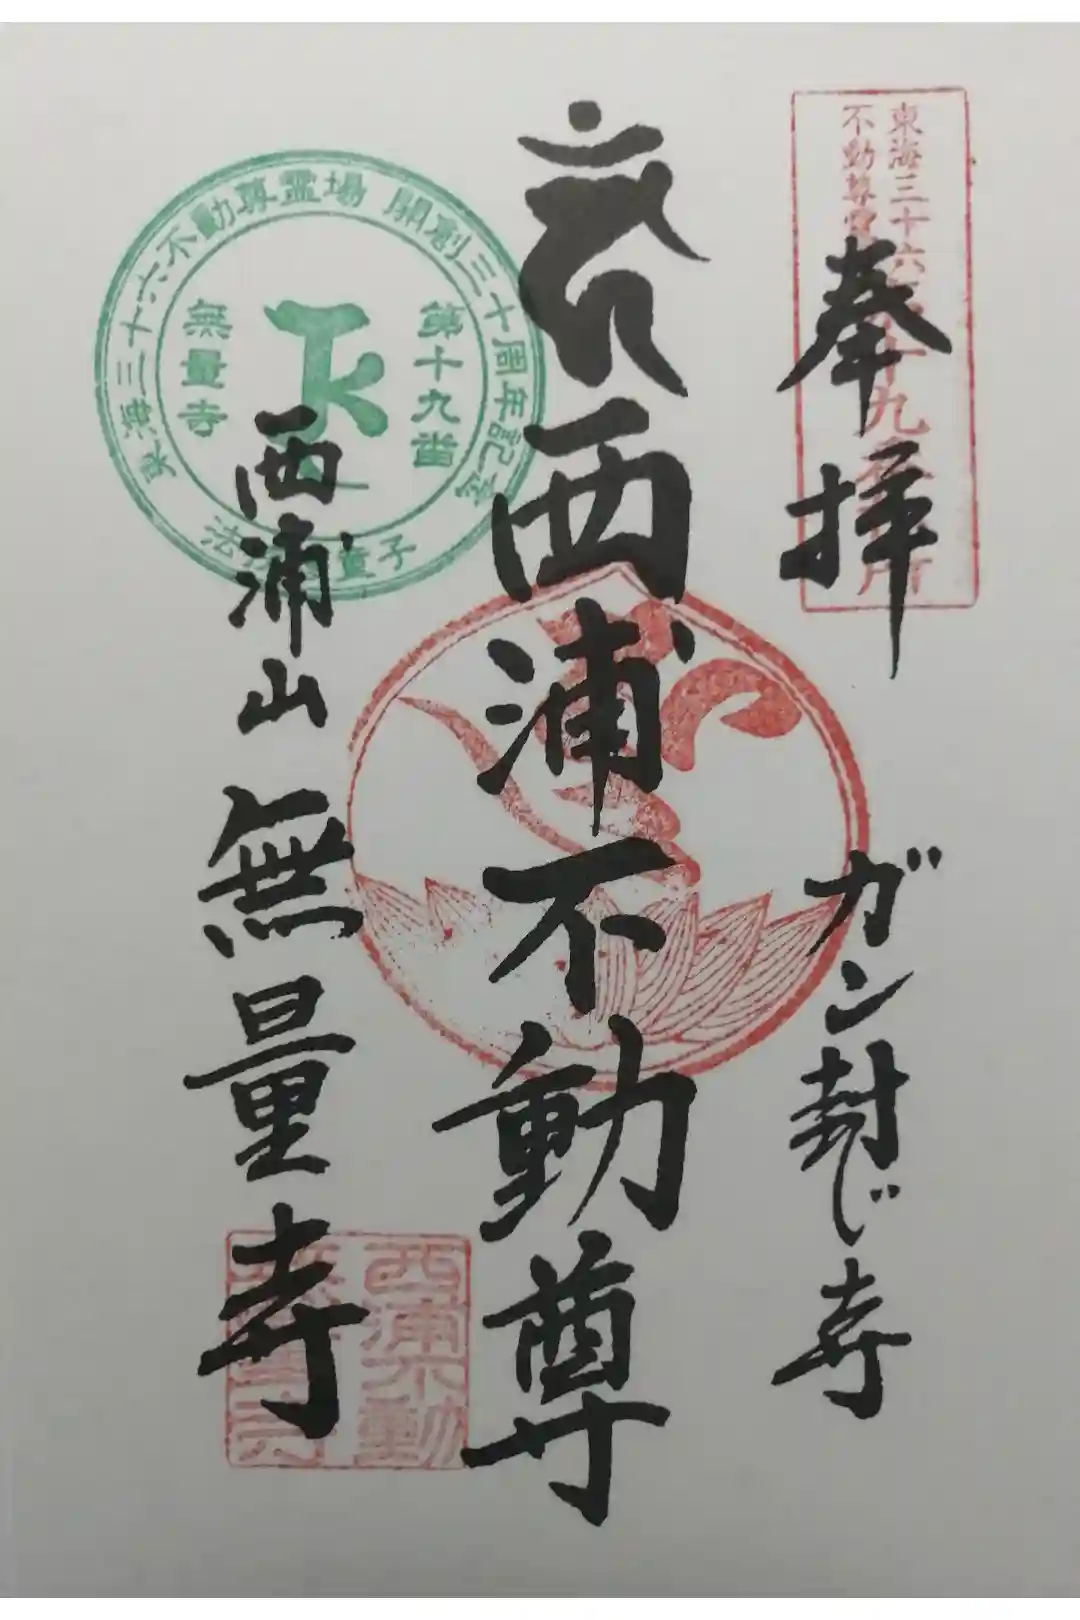 東海三十六
不動尊霊
奉拝
ガン封じ寺
西浦不動尊
西浦山 無量寺
東海三十六不動尊霊場 開創三十周年記念
第十九番
無量寺
童子
西浦不動